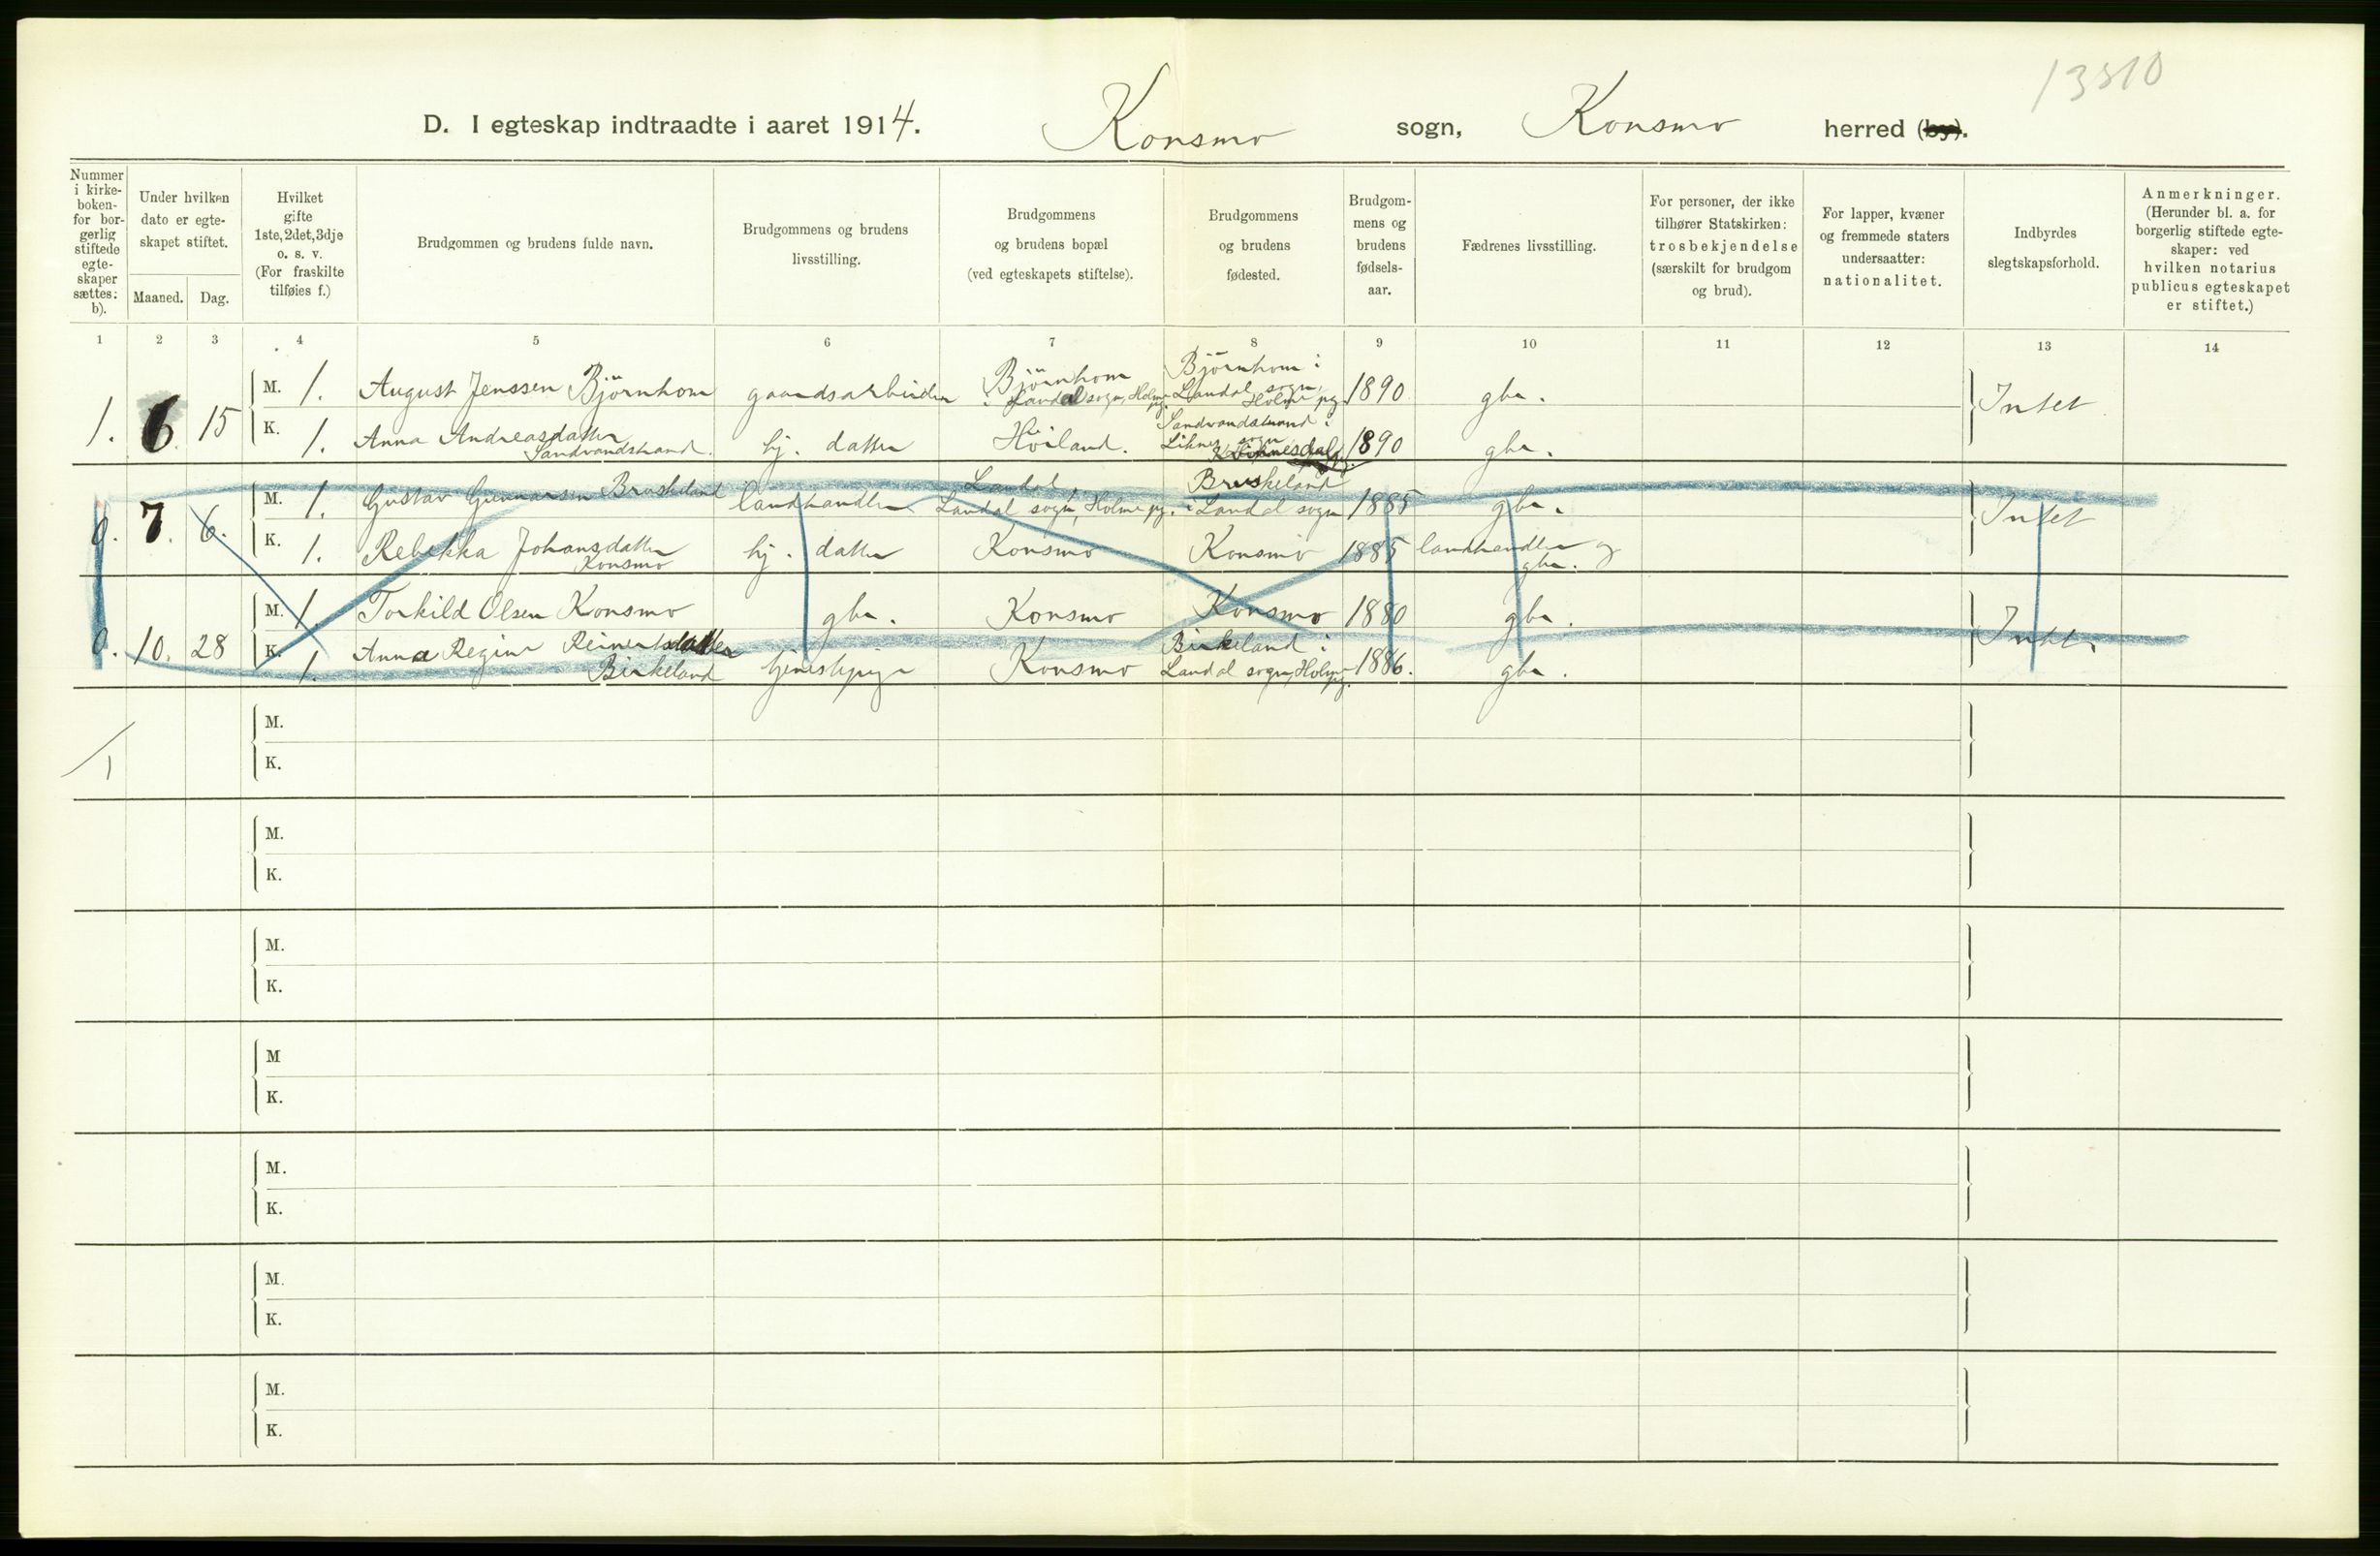 13510
D. I egteskap indtraadte i aaret 1914. Konsmo sogn, Konsmo herred (by).
Nummer i kirkeboken- for borgerlig stiftede egteskaper sættes: b).
Under hvilken dato er egteskapet stiftet.
Maaned. Dag.
Hvilket gifte 1ste, 2det, 3dje o. s. v. (For fraskilte tilføies f.)
Brudgommen og brudens fulde navn.
Brudgommens og brudens livsstilling.
Brudgommens og brudens bopæl (ved egteskapets stiftelse).
Brudgommens og brudens fødested.
Brudgommens og brudens fødselsaar.
Fædrenes livsstilling.
For personer, der ikke tilhører Statskirken: trosbekjendelse (særskilt for brudgom og brud).
For lapper, kvæner og fremmede staters undersaatter: nationalitet.
Indbyrdes slegtskapsforhold.
Anmerkninger. (Herunder bl. a. for borgerlig stiftede egteskaper: ved hvilken notarius publicus egteskapet er stiftet.)
1 2 3 4 5 6 7 8 9 10 11 12 13 14
1. 6. 15 M. 1. August Jenssen Björnhom gaardsarbeider Björnhom i Landal sogn, Holme pg. Björnhom i Landal sogn, Holme pg. 1890 gbr. Intet
K. 1. Anna Andreasdatter Sandvandstrand. hj. datter Höiland. Sandvandstrand i Liknes sogn 1890 gbr.
0. 7. 6. M. 1. Gustav Gunnarsen Bruskeland landhandler Landal Landal sogn, Holme pg. Bruskeland i Landal sogn 1885 gbr. Intet
K. 1. Rebekka Johansdatter Konsmo hj. datter Konsmo Konsmo 1885 landhandler og gbr.
0. 10. 28 M. 1. Torkild Olsen Konsmo gbr. Konsmo Konsmo 1880 gbr. Intet.
K. 1. Anna Regine Reinertsdatter Birkeland tjenestepige Konsmo Birkeland i Landal sogn, Holme pg. 1886. gbr.
1
M.
K.
M.
K.
M.
K.
M
K.
M.
K.
M.
K.
M.
K.